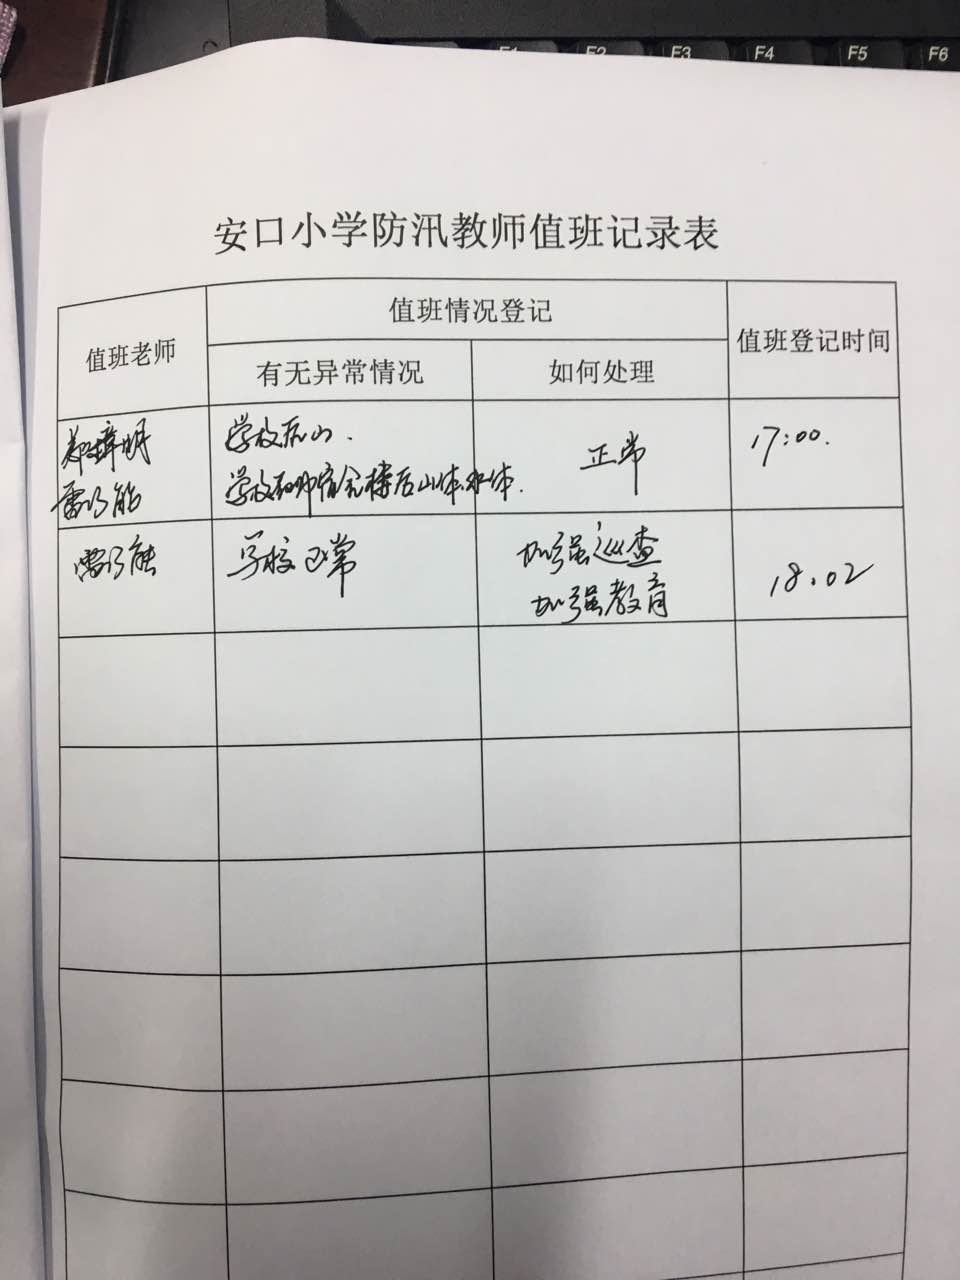 F1 F2 F3 F4 F5 F6
安口小学防汛教师值班记录表
值班老师
值班情况登记
值班登记时间
有无异常情况
如何处理
学校后山.
学校教师宿舍楼后山体水体.
正常
17:00.
学校正常
加强巡查
加强教育
18.02